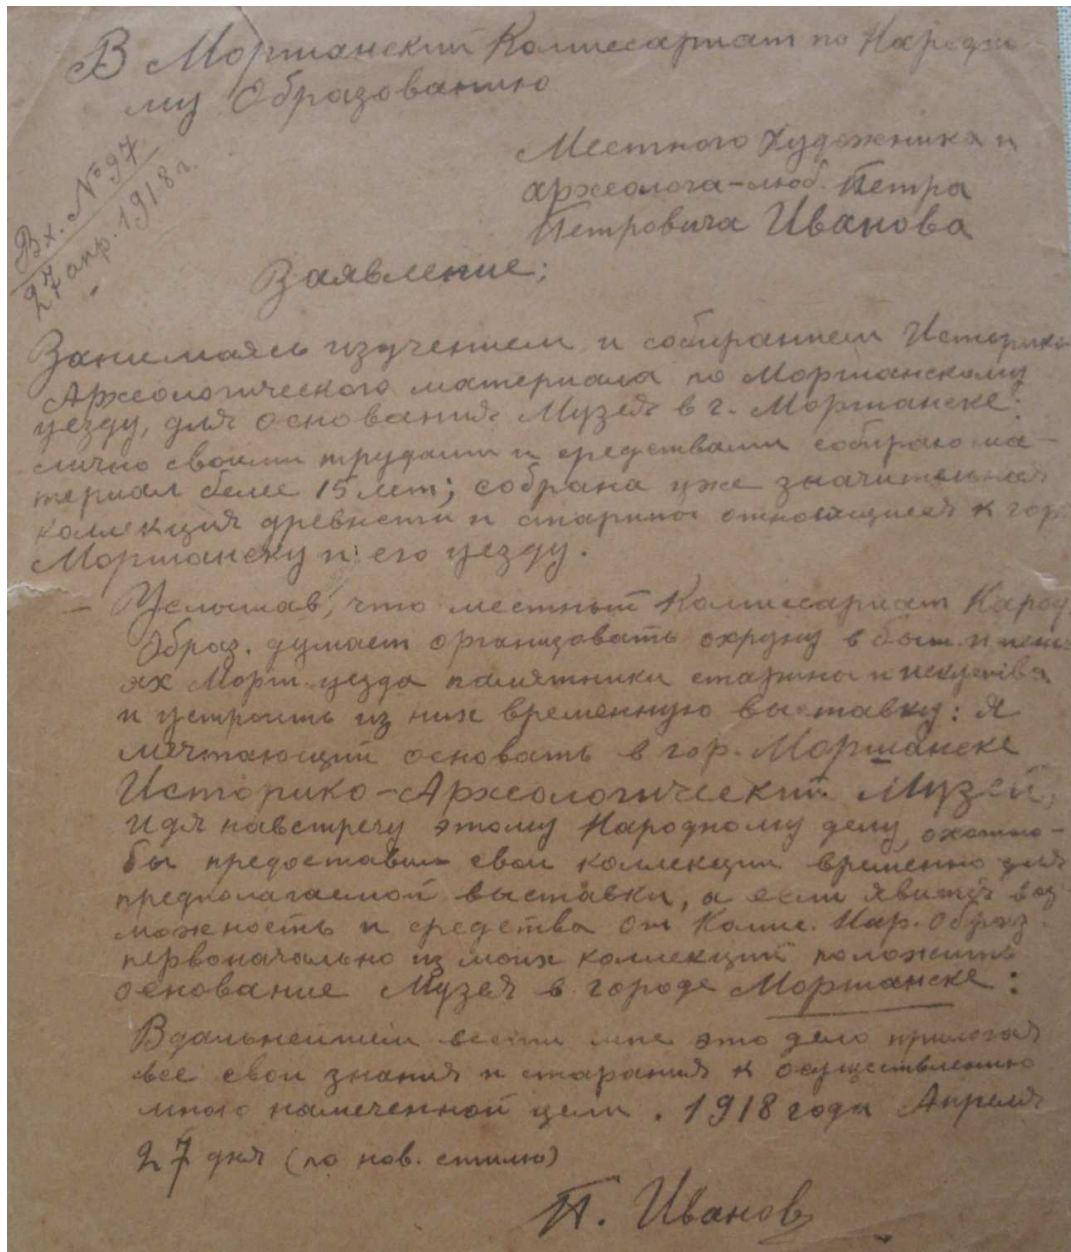 В Моршанский Комиссариат по Народно
му Образованию
Вх. № 97
27 апр. 1918 г.
Местного Художника и
археолога-люб. Петра
Петровича Иванова
Заявление;
Занимаясь изучением и собиранием Историко
Археологического материала по Моршанскому
уезду, для основания Музея в г. Моршанске:
лично своими трудами и средствами собираю ма-
териал белее 15 лет; собрана уже значительная
коллекция древности и старины относящиеся к гор.
Моршанску и его уезду.
- Услышав, что местный Комиссариат Народ.
Образ. думает организовать охрану в быв. имени
ях Морш. уезда памятники старины и искуства
и устроить из них временную выставку: Я
мечтающий основать в гор. Моршанске
Историко-Археологический Музей,
идя навстречу этому Народному делу, охотно-
бы предоставил свои коллекции временно для
предполагаемой выставки, а если явится воз
можность и средства от Комис. Нар. Образ.
первоначально из моих коллекций положить
основание Музея в городе Моршанске:
Вдальнейшем вести мне это дело прилогая
все свои знания и старания к осуществлению
мною намеченной цели. 1918 года Апреля
27 дня (по нов. стилю)
П. Иванов